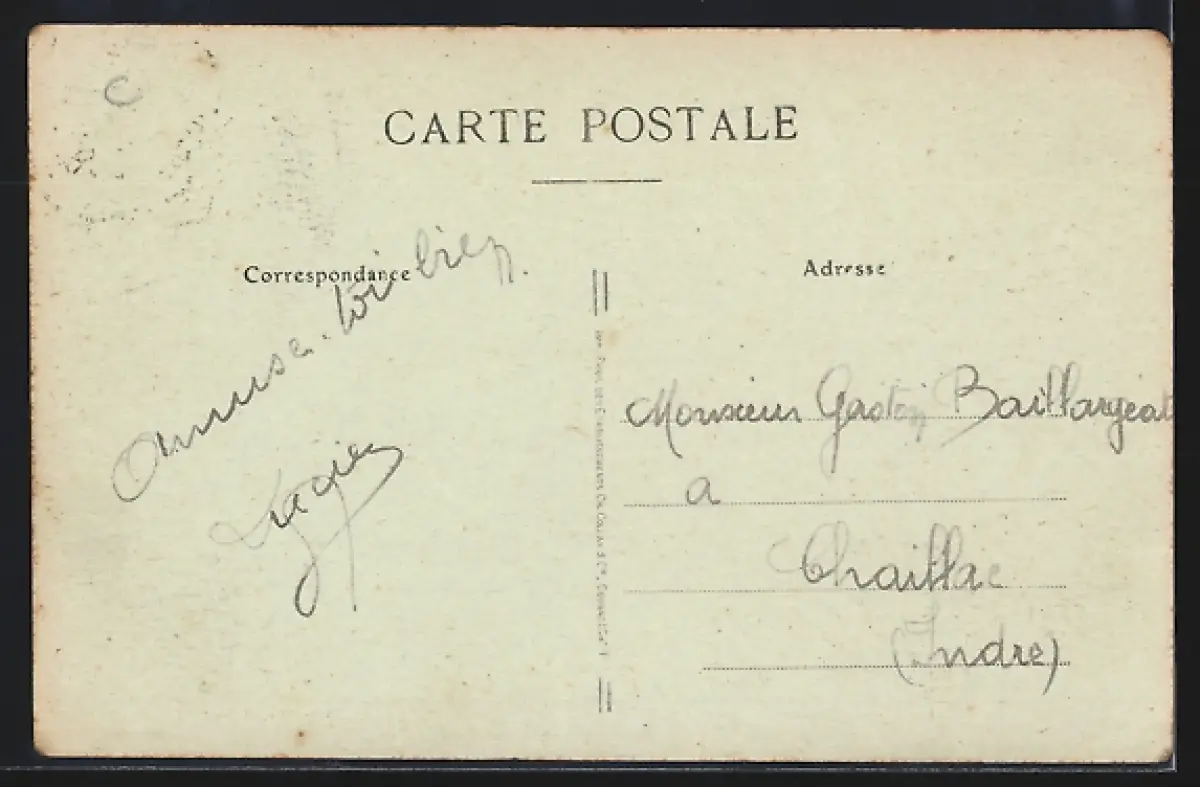 C
CARTE POSTALE
Correspondance
Adresse
Amuse-toi bien.
Monsieur Gaston Baillargeat
a
Chaillac
(Indre)